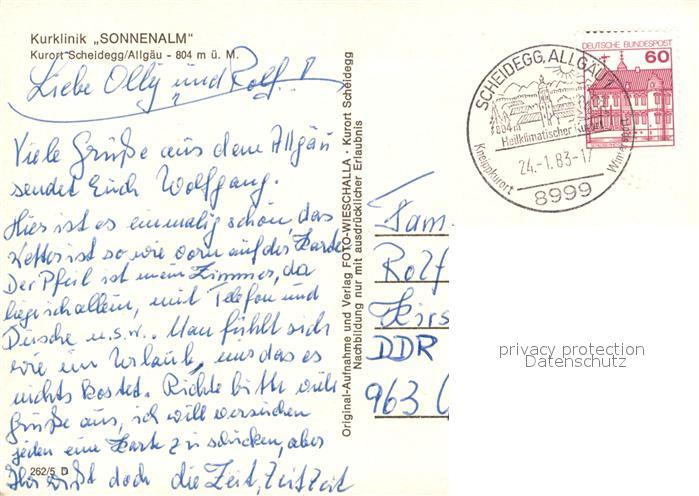 Kurklinik „SONNENALM"
Kurort Scheidegg/Allgäu - 804 m ü. M.
Liebe Olly und Rolf!
Viele Grüße aus dem Allgäu
sendet Euch Wolfgang.
Hier ist es einmalig schön, das
Wetter ist so wie vorn auf der Karte
Der Pfeil ist mein Zimmer, da
liege ich allein, mit Telefon und
Dusche u.s.w. Man fühlt sich
wie im Urlaub, nur das es
nichts kostet. Richte bitte viele
Grüße aus, ich will versuchen
jeden eine Karte zu schicken, aber
Ihr wißt doch die Zeit, Zeit Zeit
262/5 D
Original-Aufnahme und Verlag FOTO-WIESCHALLA · Kurort Scheidegg
Nachbildung nur mit ausdrücklicher Erlaubnis
DEUTSCHE BUNDESPOST
60
SCHEIDEGG, ALLGÄU 1
804 m
Heilklimatischer Kurort
Kneippkurort
24.-1.83-17
Wintersport
8999
Fam
Rolf
Hirs
DDR
963
privacy protection
Datenschutz